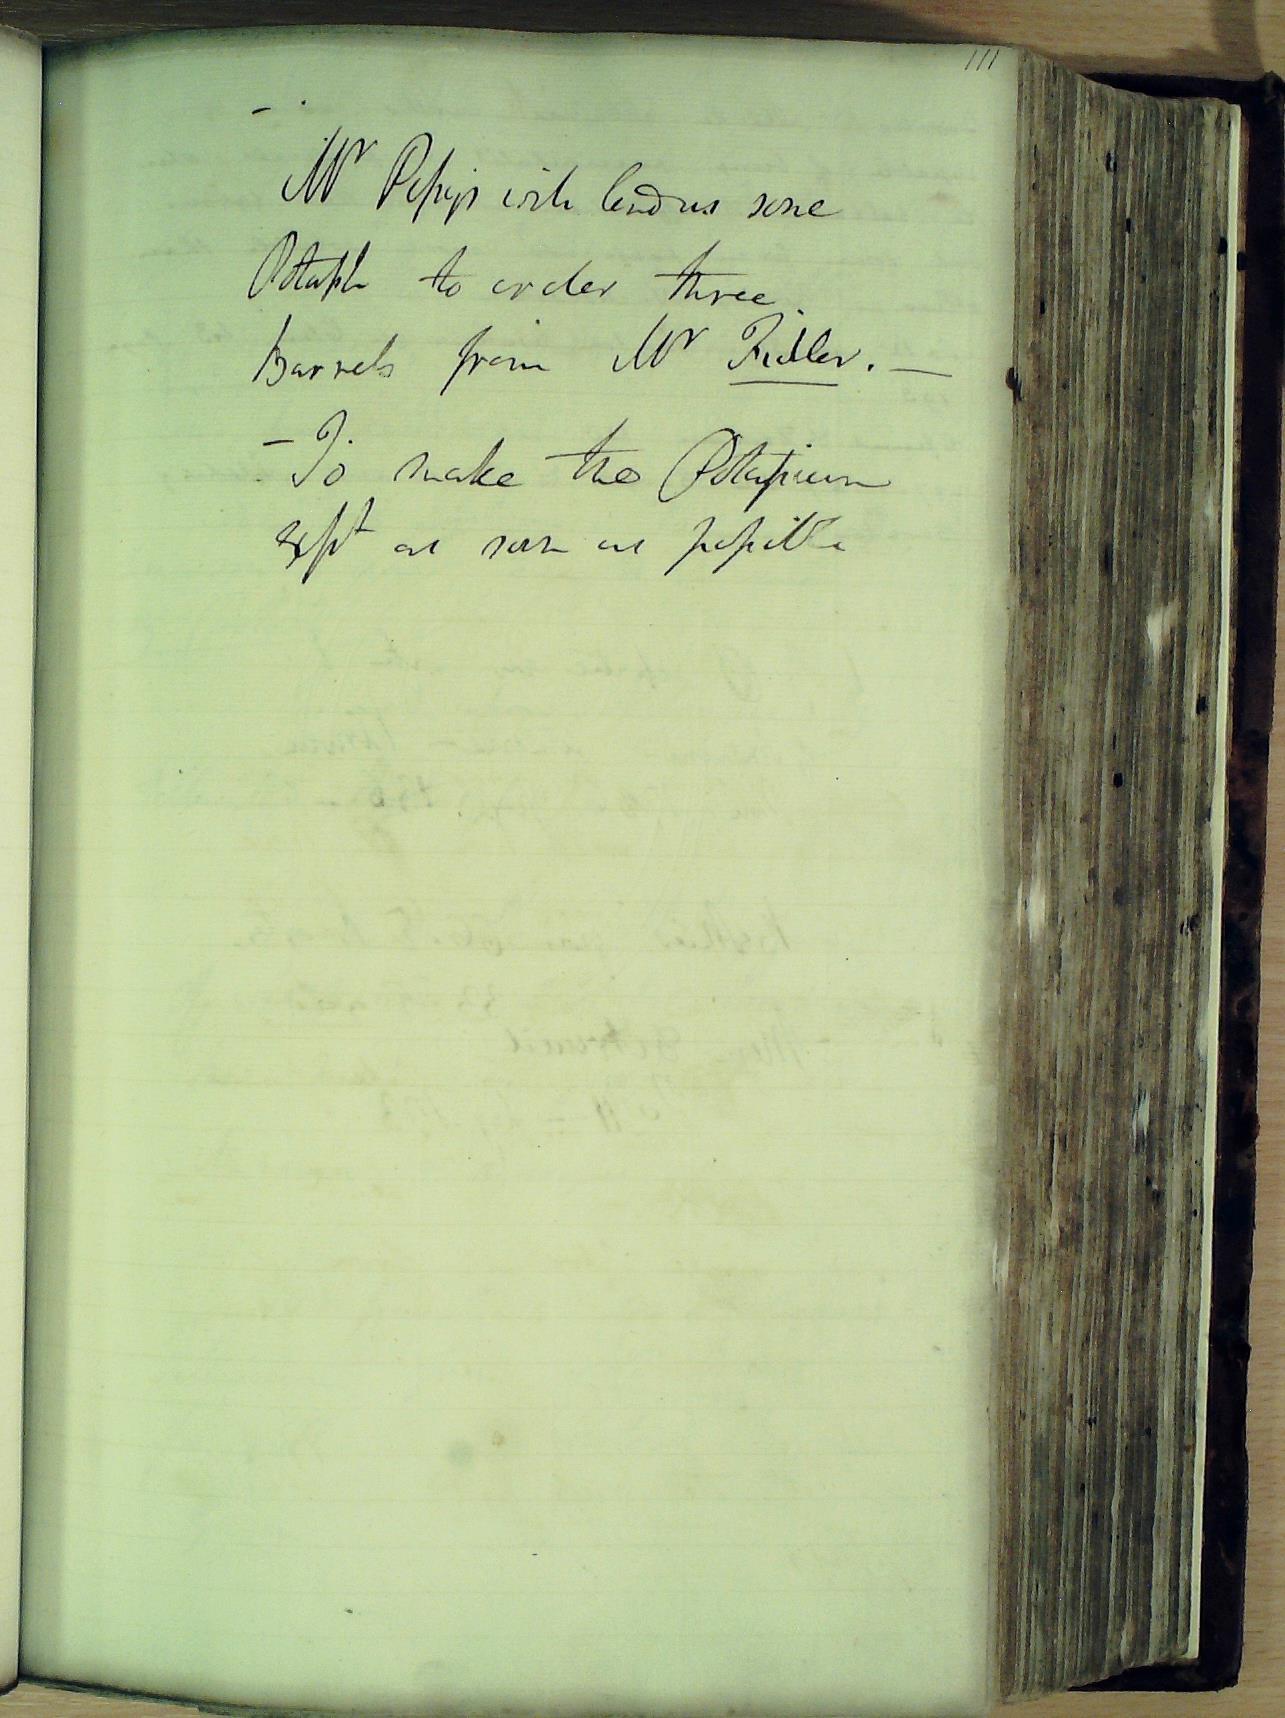 111
Mr Pepys will lend us some
Potash to order three
Barrels from Mr Fidler. —
- To make the Potassium
expt as soon as possible